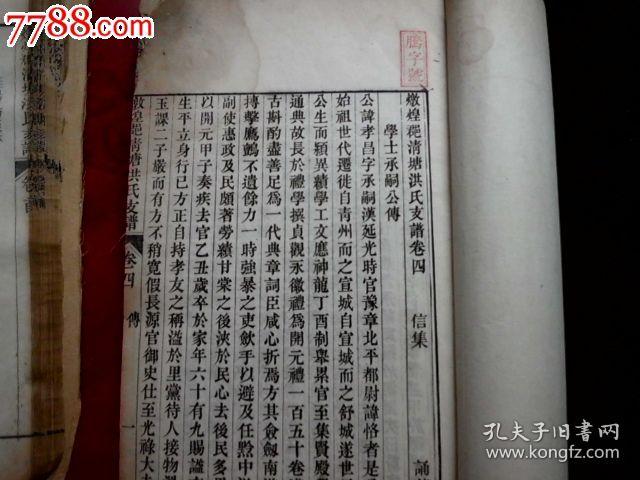 7788.com
騰字號
燉煌硊清塘洪氏支譜卷四 信集 誦
學士承嗣公傳
公諱孝昌字承嗣漢延光時官豫章北平都尉諱恪者是
始祖世代遷徙自青州而之宣城自宣城而之舒城遂世
公生而穎異績學工文應神龍丁酉制舉累官至集賢殿
通典故長於禮學撰貞觀永徽禮為開元禮一百五十卷
古斟酌盡善足為一代典章詞臣咸心折焉方其僉劒南
搏擊鷹鸇不遺餘力一時強暴之吏歛手以避及任黔中
副使惠政及民頗著勞績甘棠之後浹於民心去後民多
以開元甲子奏疾去官乙丑歲卒於家年六十有九賜謚
生平立身行己方正自持孝友之稱溢於里黨待人接物
玉課二子嚴而有方不稍寬假長源官御史仕至光祿大
燉煌硊清塘洪氏支譜 卷四 傳 一
清塘洪氏支譜
孔夫子旧书网